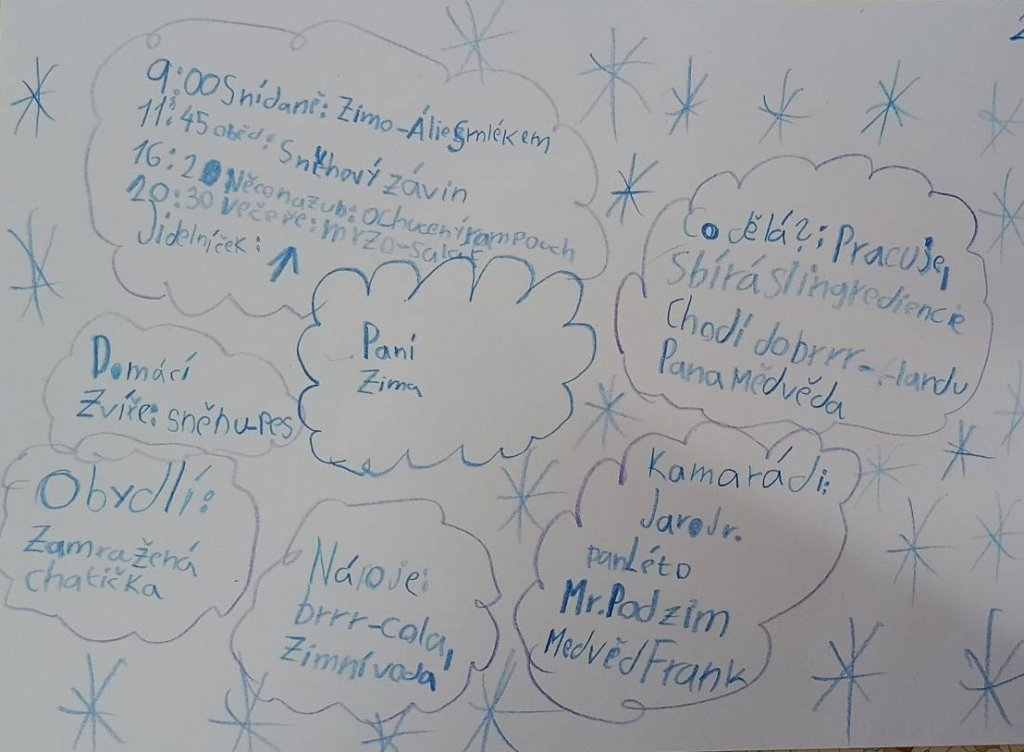 9:00 Snídaně: Zimo-Álie s mlékem
11:45 oběd: Sněhový závin
16:20 Něco na zub: ochucený rampouch
20:30 večeře: mrzo-salát
Jídelníček:
Paní
Zima
Co dělá?: Pracuje,
Sbírá si ingredience
Chodí do brrr-landu
Pana Medvěda
Domácí
Zvíře: sněhu-pes
Obydlí:
Zamražená
chatička
Nápoje:
brrr-cola,
Zimní voda
Kamarádi:
Jaro Jr.
pan Léto
Mr. Podzim
Medvěd Frank